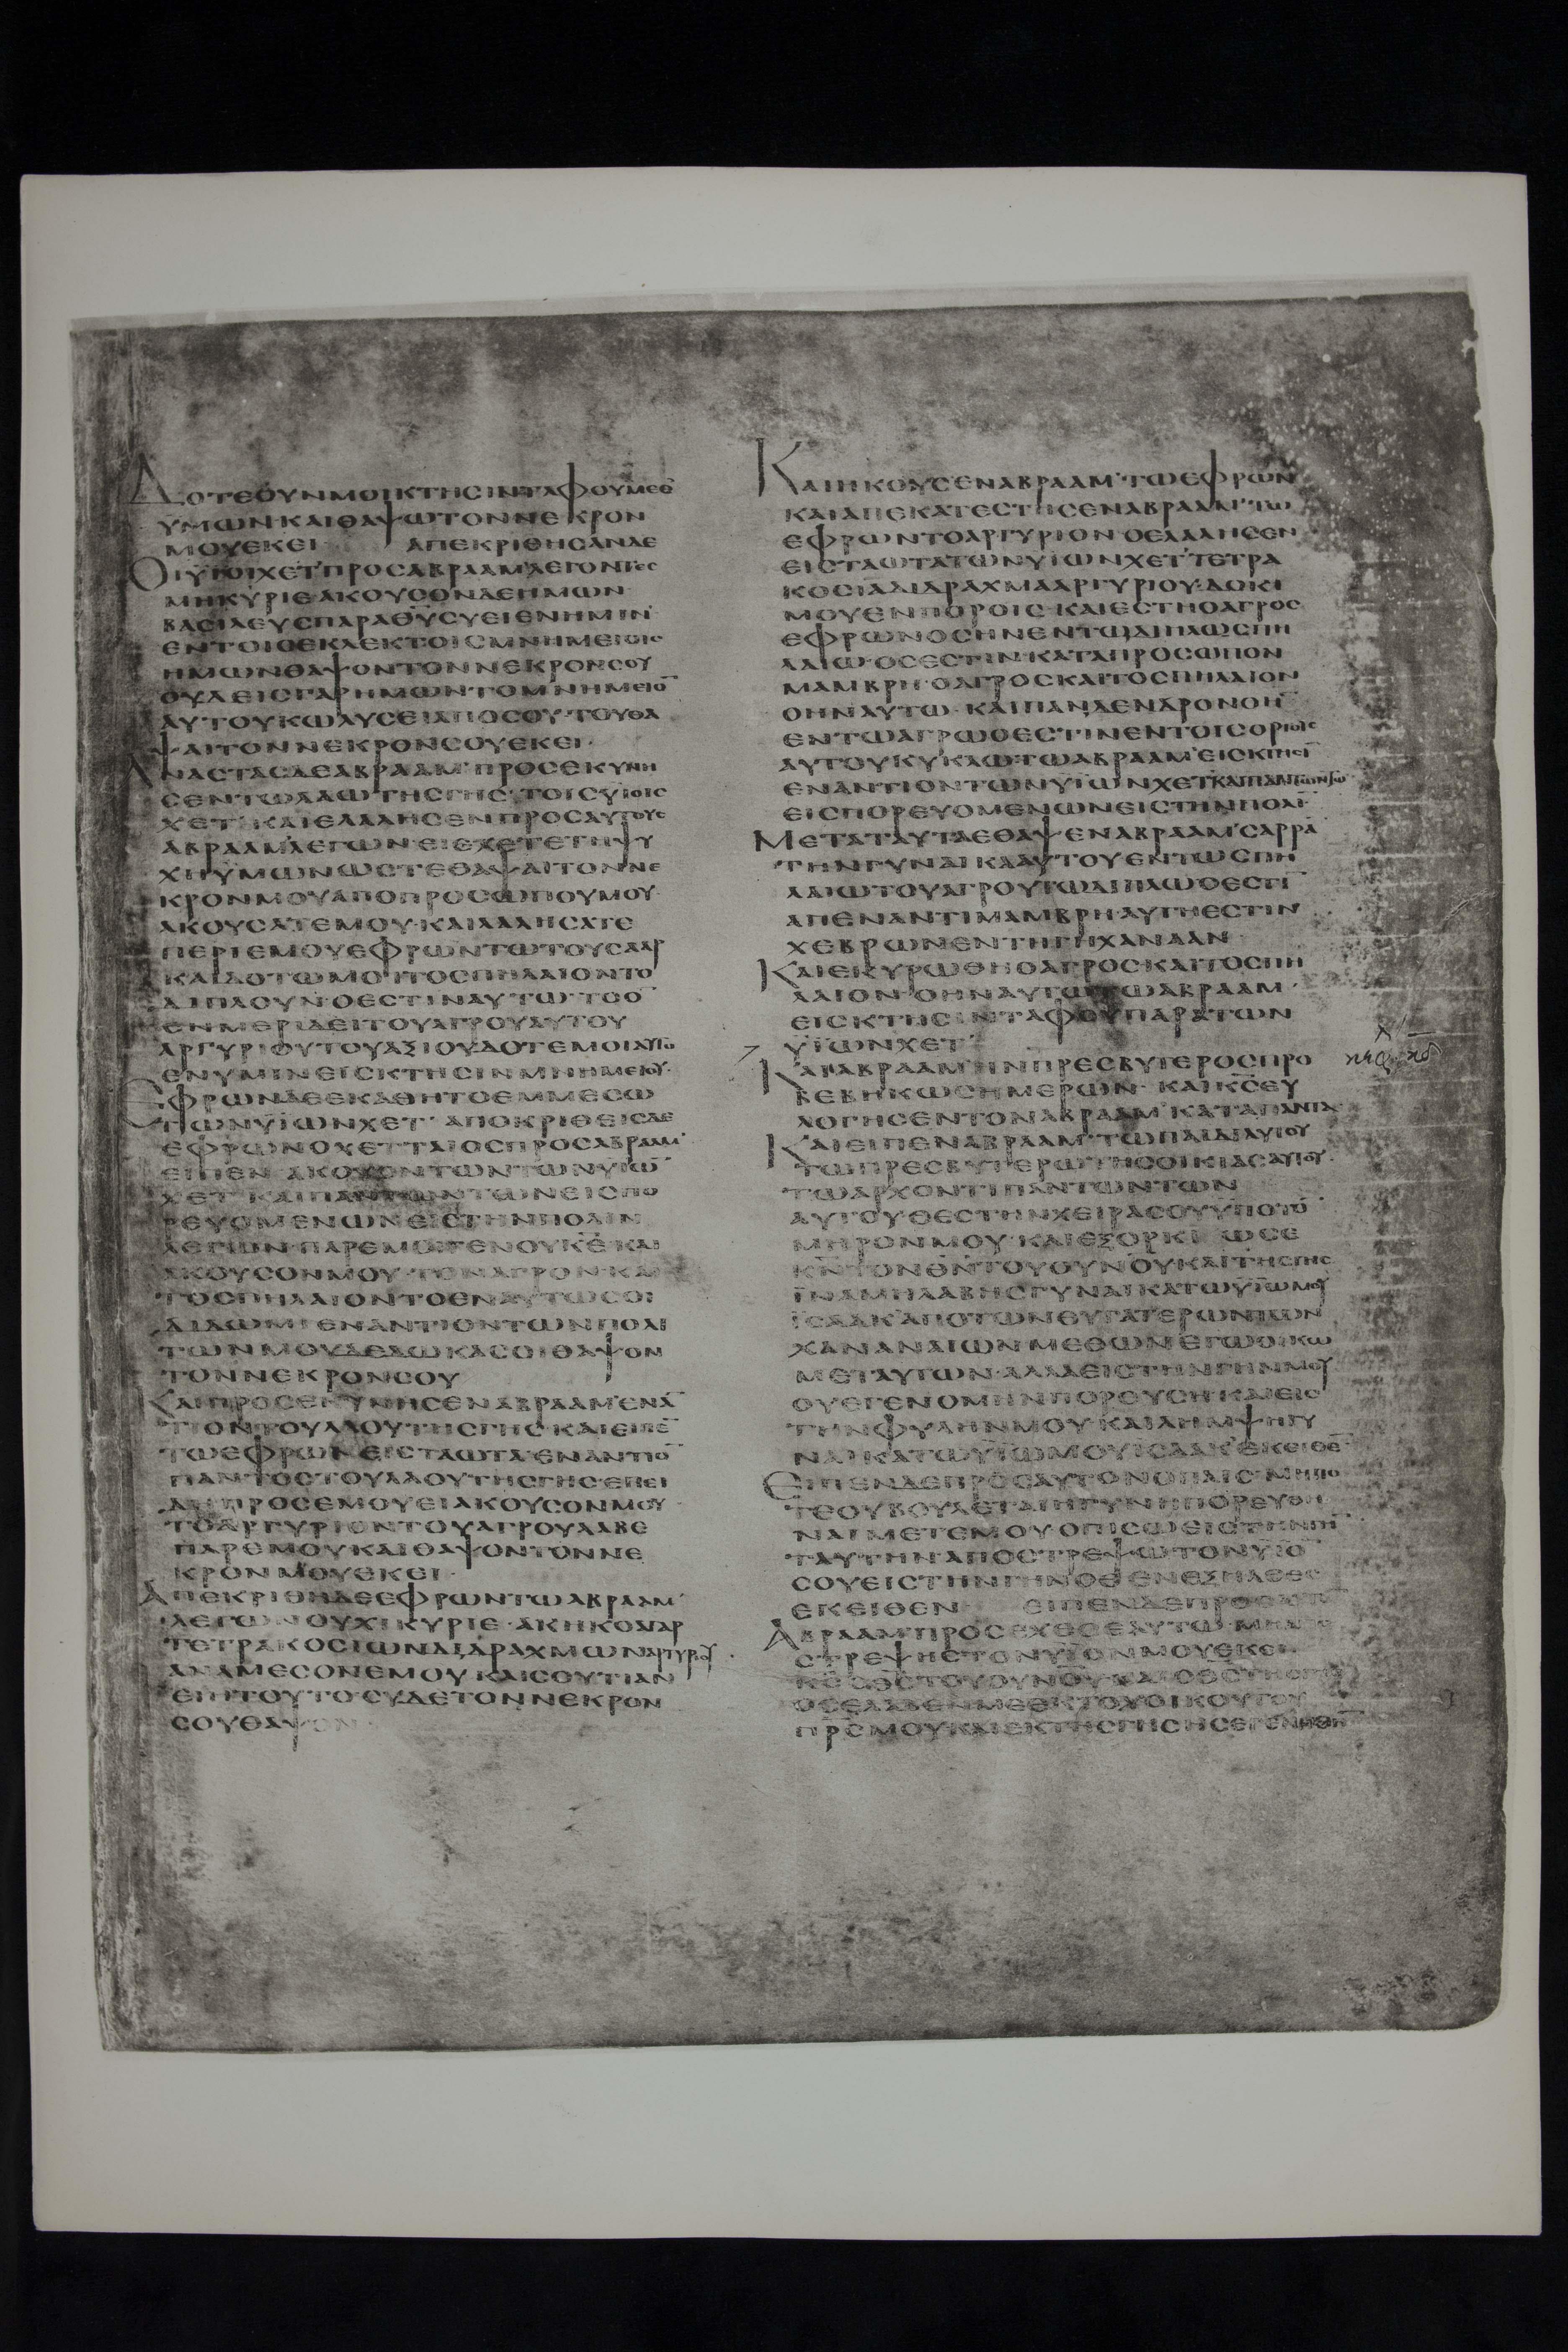 ΔΟΤΕΟΥΝΜΟΙΚΤΗϹΙΝΤΑΦΟΥΜΕΘ
ΥΜΩΝΚΑΙΘΑΨΩΤΟΝΝΕΚΡΟΝ
ΜΟΥΕΚΕΙ ΑΠΕΚΡΙΘΗϹΑΝΔΕ
ΟΙΫΙΟΙΧΕΤ᾽ΠΡΟϹΑΒΡΑΑΜ᾽ΛΕΓΟΝΤΕϹ
ΜΗΚΥΡΙΕΑΚΟΥϹΟΝΔΕΗΜΩΝ
ΒΑϹΙΛΕΥϹΠΑΡΑΘ̅Υ̅ϹΥΕΙΕΝΗΜΙΝ·
ΕΝΤΟΙϹΕΚΛΕΚΤΟΙϹΜΝΗΜΕΙΟΙϹ
ΗΜΩΝΘΑΨΟΝΤΟΝΝΕΚΡΟΝϹΟΥ
ΟΥΔΕΙϹΓΑΡΗΜΩΝ·ΤΟΜΝΗΜΕΙΟ̅
ΑΥΤΟΥΚΩΛΥϹΕΙΑΠΟϹΟΥ·ΤΟΥΘΑ
ΨΑΙΤΟΝΝΕΚΡΟΝϹΟΥΕΚΕΙ·
ΑΝΑϹΤΑϹΔΕΑΒΡΑΑΜ᾽ΠΡΟϹΕΚΥΝΗ
ϹΕΝΤΩΛΑΩΤΗϹΓΗϹ·ΤΟΙϹΥΙΟΙϹ
ΧΕΤ᾽·ΚΑΙΕΛΑΛΗϹΕΝΠΡΟϹΑΥΤΟΥϹ
ΑΒΡΑΑΜ᾽ΛΕΓΩΝΕΙΕΧΕΤΕΤΗΨΥ
ΧΗΫΜΩΝΩϹΤΕΘΑΨΑΙΤΟΝΝΕ
ΚΡΟΝΜΟΥΑΠΟΠΡΟϹΩΠΟΥΜΟΥ·
ΑΚΟΥϹΑΤΕΜΟΥ·ΚΑΙΛΑΛΗϹΑΤΕ
ΠΕΡΙΕΜΟΥΕΦΡΩΝΤΩΤΟΥϹΑΑΡ
ΚΑΙΔΟΤΩΜΟΙΤΟϹΠΗΛΑΙΟΝΤΟ
ΔΙΠΛΟΥΝ·ΟΕϹΤΙΝΑΥΤΩ·ΤΟΟ̅
ΕΝΜΕΡΙΔΕΙΤΟΥΑΓΡΟΥΑΥΤΟΥ
ΑΡΓΥΡΙΟΥΤΟΥΑΞΙΟΥΔΟΤΕΜΟΙΑΥΤΟ
ΕΝΥΜΙΝΕΙϹΚΤΗϹΙΝΜΝΗΜΕΙΟΥ·
ΕΦΡΩΝΔΕΕΚΑΘΗΤΟΕΜΜΕϹΩ
ΤΩΝΥΪΩΝΧΕΤ᾽ ΑΠΟΚΡΙΘΕΙϹΔΕ
ΕΦΡΩΝΟΧΕΤΤΑΙΟϹΠΡΟϹΑΒΡΑΑΜ᾽
ΕΙΠΕΝ ΑΚΟΥΟΝΤΩΝΤΩΝΥΙΩ̅
ΧΕΤ᾽ΚΑΙΠΑΝΤΩΝΤΩΝΕΙϹΠΟ
ΡΕΥΟΜΕΝΩΝΕΙϹΤΗΝΠΟΛΙΝ
ΛΕΓΩΝ·ΠΑΡΕΜΟΙΓΕΝΟΥΚ̅Ε̅ΚΑΙ
ΑΚΟΥϹΟΝΜΟΥ·ΤΟΝΑΓΡΟΝΚΑΙ
ΤΟϹΠΗΛΑΙΟΝΤΟΕΝΑΥΤΩϹΟΙ
ΔΙΔΩΜΙΕΝΑΝΤΙΟΝΤΩΝΠΟΛΙ
ΤΩΝΜΟΥΔΕΔΩΚΑϹΟΙΘΑΨΟΝ
ΤΟΝΝΕΚΡΟΝϹΟΥ
ΚΑΙΠΡΟϹΕΚΥΝΗϹΕΝΑΒΡΑΑΜ᾽ΕΝΑ̅
ΤΙΟΝΤΟΥΛΑΟΥΤΗϹΓΗϹ·ΚΑΙΕΙΠΕ̅
ΤΩΕΦΡΩΝΕΙϹΤΑΩΤΑ·ΕΝΑΝΤΙΟ̅
ΠΑΝΤΟϹΤΟΥΛΑΟΥΤΗϹΓΗϹ·ΕΠΕΙ
ΔΗΠΡΟϹΕΜΟΥΕΙΑΚΟΥϹΟΝΜΟΥ·
ΤΟΑΡΓΥΡΙΟΝΤΟΥΑΓΡΟΥΛΑΒΕ
ΠΑΡΕΜΟΥΚΑΙΘΑΨΟΝΤΟΝΝΕ
ΚΡΟΝΜΟΥΕΚΕΙ·
ΑΠΕΚΡΙΘΗΔΕΕΦΡΩΝΤΩΑΒΡΑΑΜ᾽
ΛΕΓΩΝΟΥΧΙΚΥΡΙΕ·ΑΚΗΚΟΑΓΑΡ
ΤΕΤΡΑΚΟϹΙΩΝΔΙΔΡΑΧΜΩΝΑΡΓΥΡΙΟΥ·
ΑΝΑΜΕϹΟΝΕΜΟΥΚΑΙϹΟΥΤΙΑΝ
ΕΙΗΤΟΥΤΟϹΥΔΕΤΟΝΝΕΚΡΟΝ
ϹΟΥΘΑΨΟΝ
ΚΑΙΗΚΟΥϹΕΝΑΒΡΑΑΜ᾽ΤΩΕΦΡΩΝ
ΚΑΙΑΠΕΚΑΤΕϹΤΗϹΕΝΑΒΡΑΑΜ᾽ΤΩ
ΕΦΡΩΝΤΟΑΡΓΥΡΙΟΝ·ΟΕΛΑΛΗϹΕΝ
ΕΙϹΤΑΩΤΑΤΩΝΥΪΩΝΧΕΤ᾽ΤΕΤΡΑ
ΚΟϹΙΑΔΙΔΡΑΧΜΑΑΡΓΥΡΙΟΥ·ΔΟΚΙ
ΜΟΥΕΝΠΟΡΟΙϹ·ΚΑΙΕϹΤΗΟΑΓΡΟϹ
ΕΦΡΩΝΟϹΗΝΕΝΤΩΔΙΠΛΩϹΠΗ
ΛΑΙΩ·ΟϹΕϹΤΙΝ·ΚΑΤΑΠΡΟϹΩΠΟΝ
ΜΑΜΒΡΗ·ΟΑΓΡΟϹΚΑΙΤΟϹΠΗΛΑΙΟΝ
ΟΗΝΑΥΤΩ·ΚΑΙΠΑΝΔΕΝΔΡΟΝΟΗ̅
ΕΝΤΩΑΓΡΩΟΕϹΤΙΝΕΝΤΟΙϹΟΡΙΟΙϹ
ΑΥΤΟΥΚΥΚΛΩ·ΤΩΑΒΡΑΑΜ᾽ΕΙϹΚΤΗϹΙ̅
ΕΝΑΝΤΙΟΝΤΩΝΥΪΩΝΧΕΤ᾽ΚΑΙΠΑΝΤΩΝΤΩ̅
ΕΙϹΠΟΡΕΥΟΜΕΝΩΝΕΙϹΤΗΝΠΟΛΙ̅
ΜΕΤΑΤΑΥΤΑΕΘΑΨΕΝΑΒΡΑΑΜ᾽ϹΑΡΡΑ̅
ΤΗΝΓΥΝΑΙΚΑΑΥΤΟΥΕΝΤΩϹΠΗ
ΛΑΙΩΤΟΥΑΓΡΟΥΤΩΔΙΠΛΩΟΕϹΤΙ̅
ΑΠΕΝΑΝΤΙΜΑΜΒΡΗ·ΑΥΤΗΕϹΤΙΝ
ΧΕΒΡΩΝΕΝΤΗΓΗΧΑΝΑΑΝ
ΚΑΙΕΚΥΡΩΘΗΟΑΓΡΟϹΚΑΙΤΟϹΠΗ
ΛΑΙΟΝ·ΟΗΝΑΥΤΩΤΩΑΒΡΑΑΜ·
ΕΙϹΚΤΗϹΙΝΤΑΦΟΥΠΑΡΑΤΩΝ
ΥΪΩΝΧΕΤ᾽
ΚΑΙΑΒΡΑΑΜ᾽ΗΝΠΡΕϹΒΥΤΕΡΟϹΠΡΟ
ΒΕΒΗΚΩϹΗΜΕΡΩΝ· ΚΑΙΚ̅Ϲ̅ΕΥ
ΛΟΓΗϹΕΝΤΟΝΑΒΡΑΑΜ᾽ΚΑΤΑΠΑΝΤΑ·
ΚΑΙΕΙΠΕΝΑΒΡΑΑΜ᾽ΤΩΠΑΙΔΙΑΥΤΟΥ
ΤΩΠΡΕϹΒΥΤΕΡΩΤΗϹΟΙΚΙΑϹΑΥΤΟΥ·
ΤΩΑΡΧΟΝΤΙΠΑΝΤΩΝΤΩΝ
ΑΥΤΟΥ·ΘΕϹΤΗΝΧΕΙΡΑϹΟΥΫΠΟΤΟ̅
ΜΗΡΟΝΜΟΥ·ΚΑΙΕΞΟΡΚΙ ΩϹΕ
Κ̅Ν̅ΤΟΝΘ̅Ν̅ΤΟΥΟΥΝΟΥΚΑΙΤΗϹΓΗϹ
ΪΝΑΜΗΛΑΒΗϹΓΥΝΑΙΚΑΤΩΫΪΩΜΟΥ
ΪϹΑΑΚ᾽ΑΠΟΤΩΝΘΥΓΑΤΕΡΩΝΤΩΝ
ΧΑΝΑΝΑΙΩΝΜΕΘΩΝΕΓΩΟΙΚΩ
ΜΕΤΑΥΤΩΝ·ΑΛΛΑΕΙϹΤΗΝΓΗΝΜΟΥ
ΟΥΕΓΕΝΟΜΗΝΠΟΡΕΥϹΗΚΑΙΕΙϹ
ΤΗΝΦΥΛΗΝΜΟΥ·ΚΑΙΛΗΜΨΗΓΥ
ΝΑΙΚΑΤΩΥΪΩΜΟΥΙϹΑΑΚ᾽ΕΚΕΙΘΕ̅
ΕΙΠΕΝΔΕΠΡΟϹΑΥΤΟΝΟΠΑΙϹ·ΜΗΠΟ
ΤΕΟΥΒΟΥΛΕΤΑΙΗΓΥΝΗΠΟΡΕΥΘΗ
ΝΑΙΜΕΤΕΜΟΥΟΠΙϹΩΕΙϹΤΗΝΓΗ̅
ΤΑΥΤΗΝΑΠΟϹΤΡΕΨΩΤΟΝΥΙΟ̅
ϹΟΥΕΙϹΤΗΝΓΗΝΟΘΕΝΕΞΗΛΘΕϹ
ΕΚΕΙΘΕΝ ΕΙΠΕΝΔΕΠΡΟϹΑΥΤ
ΑΒΡΑΑΜ᾽ΠΡΟϹΕΧΕϹΕΑΥΤΩ·ΜΗ
ϹΤΡΕΨΗϹΤΟΝΥΪΟΝΜΟΥΕΚΕΙ·
Κ̅Ϲ̅Ο̅Θ̅Ϲ̅ΤΟΥΟΥΝΟΥΚΑΙΟΘ̅Ϲ̅ΤΗϹΓΗϹ
ΟϹΕΛΑΒΕΝΜΕΕΚΤΟΥΟΙΚΟΥΤΟΥ
Π̅Ρ̅Ϲ̅ΜΟΥΚΑΙΕΚΤΗϹΓΗϹΗϹΕΓΕΝΗΘΗ̅